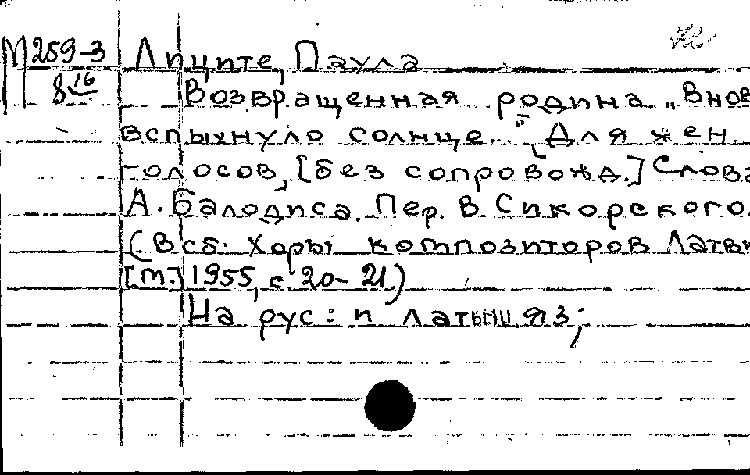 М 259-3 Лиците, Паула
8 16 Возвращенная родина „Внов
вспыхнуло солнце..." Для жен
голосов, [без сопровожд.] Слова
А. Балодиса. Пер. В. Сикорского.
(В сб: Хоры композиторов Латви
[М.] 1955, с. 20-21)
На рус: и латыш яз;